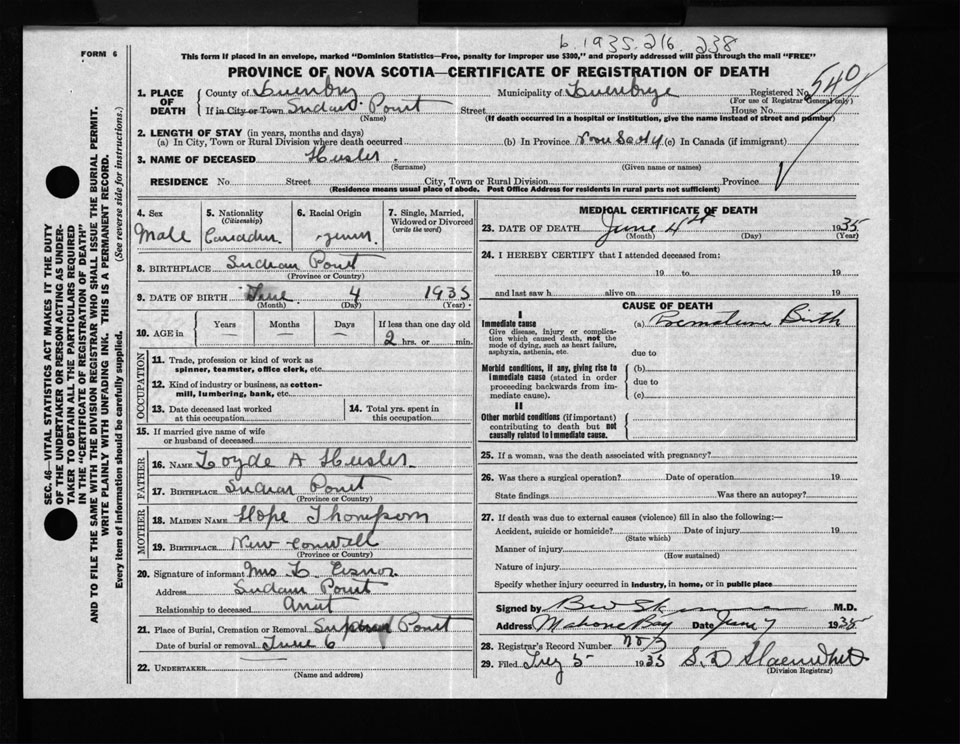 b. 1935. 216. 238
FORM 6
This form if placed in an envelope, marked "Dominion Statistics—Free, penalty for improper use $300," and properly addressed will pass through the mail "FREE"
PROVINCE OF NOVA SCOTIA—CERTIFICATE OF REGISTRATION OF DEATH
1. PLACE OF DEATH
County of Municipality of Registered No. 540
(For use of Registrar General only)
If in City or Town Point Street House No.
(Name) (If death occurred in a hospital or institution, give the name instead of street and number)
2. LENGTH OF STAY (in years, months and days)
(a) In City, Town or Rural Division where death occurred (b) In Province (c) In Canada (if immigrant)
3. NAME OF DECEASED Hisler
(Surname) (Given name or names)
RESIDENCE No. Street City, Town or Rural Division Province
(Residence means usual place of abode. Post Office Address for residents in rural parts not sufficient)
4. Sex Male
5. Nationality (Citizenship)
6. Racial Origin
7. Single, Married, Widowed or Divorced (write the word)
8. BIRTHPLACE Point
(Province or Country)
9. DATE OF BIRTH June 4 1935
(Month) (Day) (Year)
10. AGE in Years Months Days If less than one day old
2 hrs. or min.
OCCUPATION
11. Trade, profession or kind of work as spinner, teamster, office clerk, etc.
12. Kind of industry or business, as cotton-mill, lumbering, bank, etc.
13. Date deceased last worked at this occupation
14. Total yrs. spent in this occupation
15. If married give name of wife or husband of deceased
FATHER
16. NAME Loyde A Hisler
17. BIRTHPLACE Point
(Province or Country)
MOTHER
18. MAIDEN NAME Hope Thompson
19. BIRTHPLACE New Cornwell
(Province or Country)
20. Signature of informant Mrs L. Eisnor
Address Point
Relationship to deceased Aunt
21. Place of Burial, Cremation or Removal Point
Date of burial or removal June 6
22. UNDERTAKER
(Name and address)
MEDICAL CERTIFICATE OF DEATH
23. DATE OF DEATH June 4th 1935
(Month) (Day) (Year)
24. I HEREBY CERTIFY that I attended deceased from:
19 to 19
and last saw h alive on 19
CAUSE OF DEATH
I
Immediate cause
Give disease, injury or complication which caused death, not the mode of dying, such as heart failure, asphyxia, asthenia, etc.
(a) Premature Birth
due to
Morbid conditions, if any, giving rise to immediate cause (stated in order proceeding backwards from immediate cause).
(b)
due to
(c)
II
Other morbid conditions (if important) contributing to death but not causally related to immediate cause.
25. If a woman, was the death associated with pregnancy?
26. Was there a surgical operation? Date of operation 19
State findings Was there an autopsy?
27. If death was due to external causes (violence) fill in also the following:—
Accident, suicide or homicide? Date of injury 19
(State which)
Manner of injury
(How sustained)
Nature of injury
Specify whether injury occurred in industry, in home, or in public place
Signed by M.D.
Address Mahone Bay Date June 7 1935
28. Registrar's Record Number No 3
29. Filed 5 1935 S. D
(Division Registrar)
SEC. 46—VITAL STATISTICS ACT MAKES IT THE DUTY
OF THE UNDERTAKER OR PERSON ACTING AS UNDER-
TAKER TO OBTAIN ALL THE PARTICULARS REQUIRED
IN THE "CERTIFICATE OF REGISTRATION OF DEATH"
AND TO FILE THE SAME WITH THE DIVISION REGISTRAR WHO SHALL ISSUE THE BURIAL PERMIT.
WRITE PLAINLY WITH UNFADING INK. THIS IS A PERMANENT RECORD.
Every item of information should be carefully supplied. (See reverse side for instructions.)